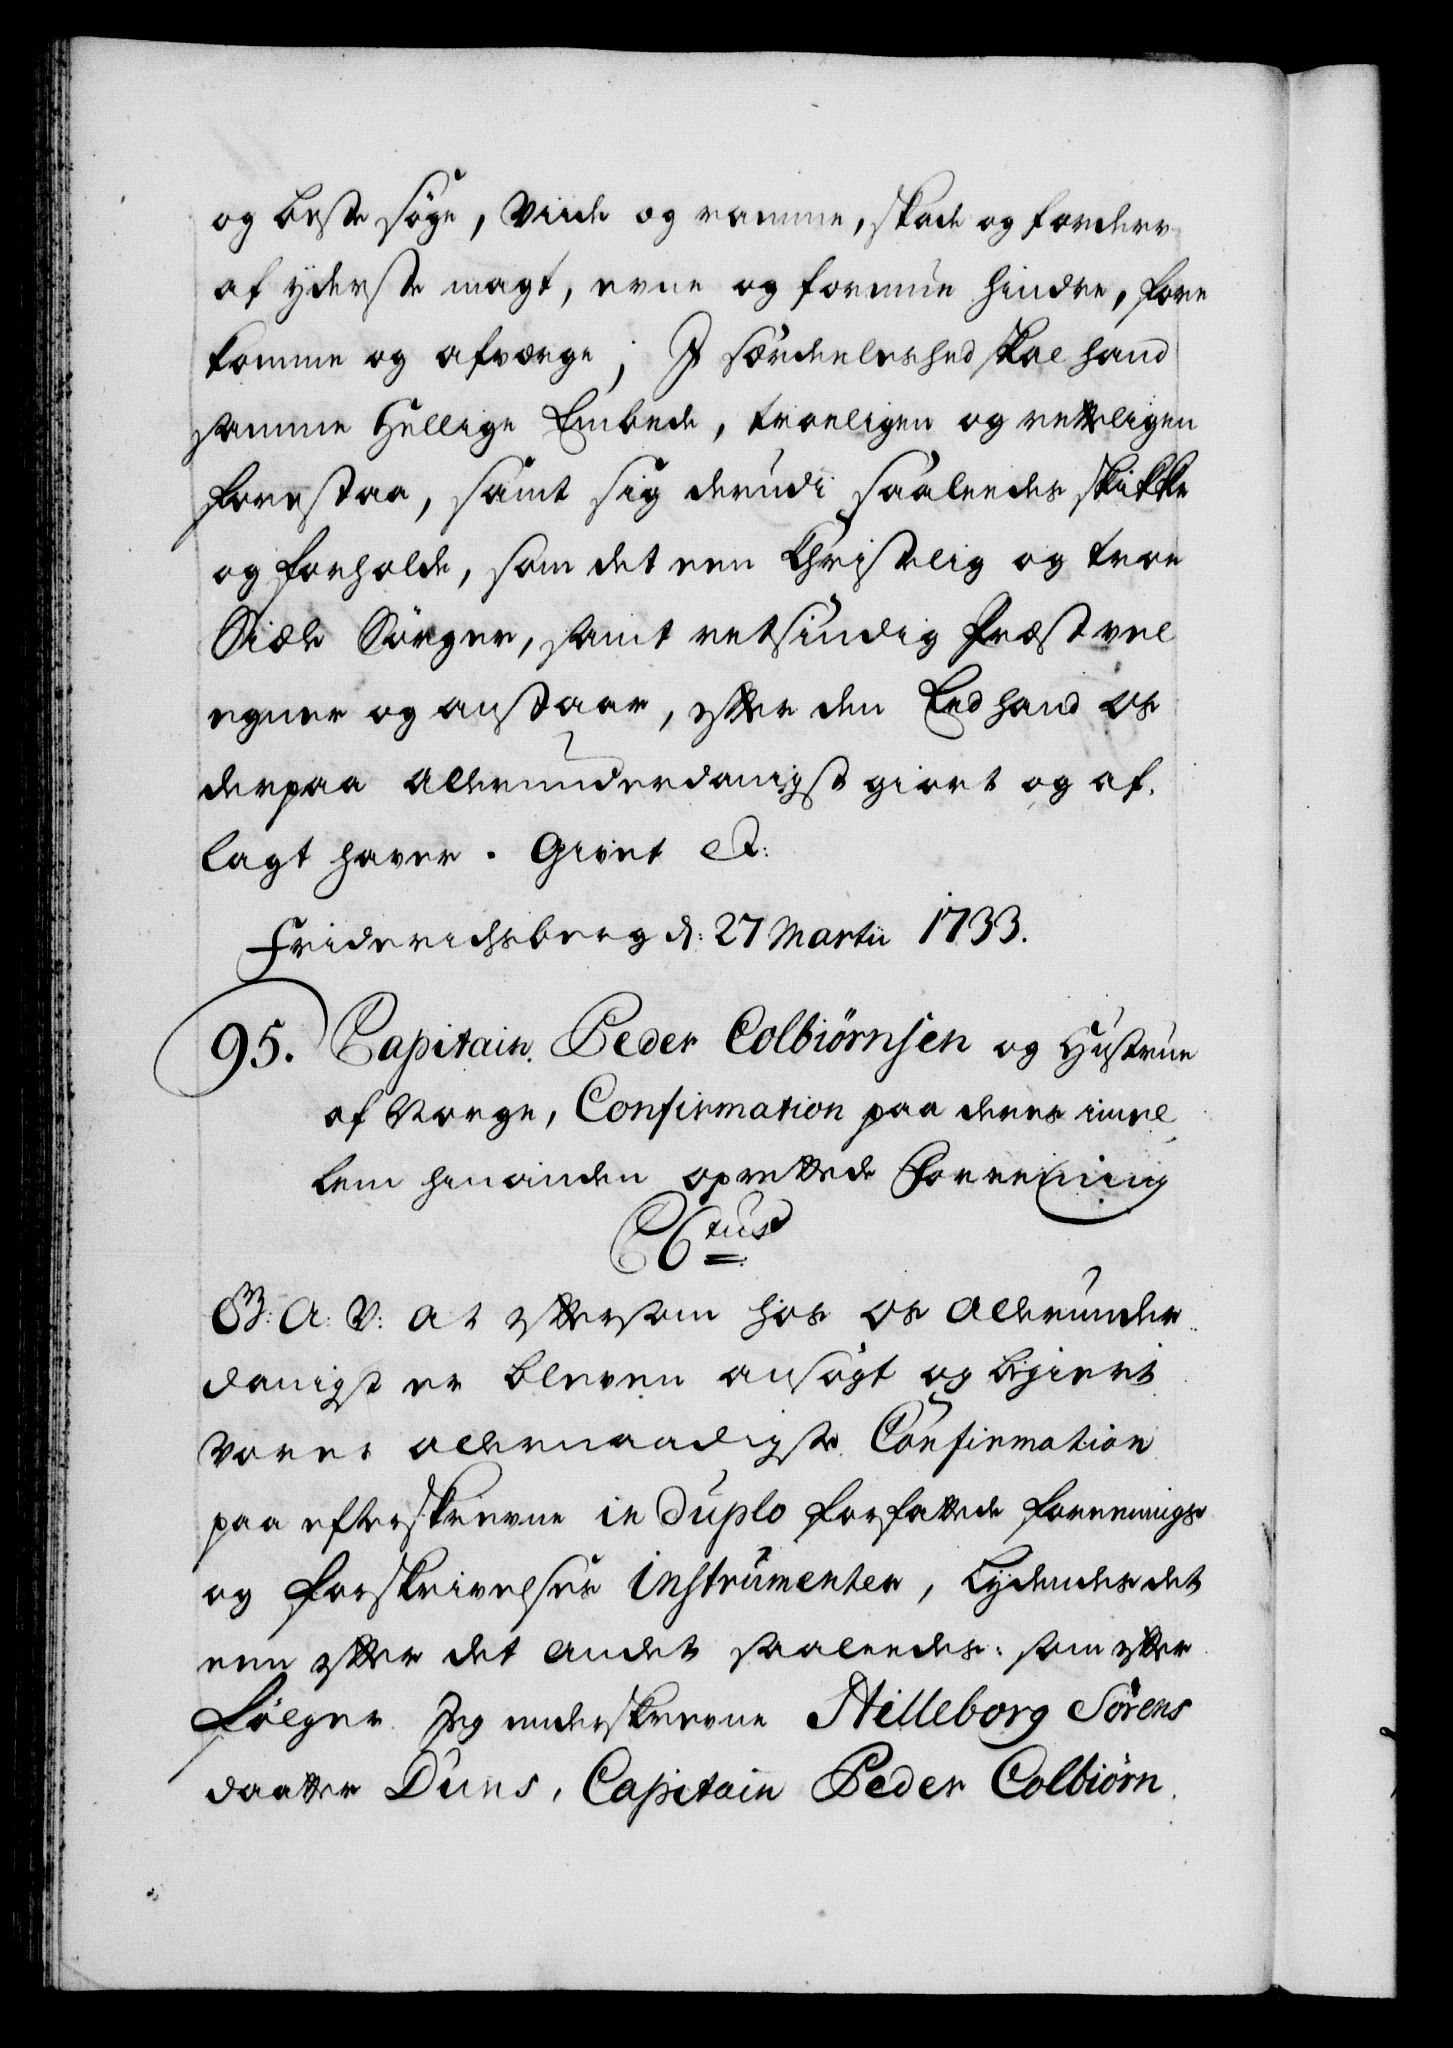 og beste søge, Viide og ramme, skade og forderv
af yderste magt, evne og formue hindre, fore
komme og afværge; I særdeeleshed skal hand
samme Hellige Embede, troeligen og retteligen
forestaa, samt sig derudi saaleedes skikke
og forholde, som det een Christelig og troe
Siæle Sørger, samt retsindig Præst vel
egner og anstaar, efter den Eed hand os
derpaa allerunderdanigst giort og af-
lagt haver. Givet &:
Friderichsberg d: 27 Martii 1733.
95. Capitain Peder Colbiörnsen og Hustrue
af Norge, Confirmation paa deres imel
lem hinanden oprettede Foreening
C6tus
G: A: V: at eftersom hos os allerunder-
danigst er bleven ansøgt og begiert
vores allernaadigste Confirmation
paa efterskrevne in Duplo forfattede foreenings
og forskrivelses instrumenter, Lydendes det
een efter det andet saaleedes: som efter
følger. Jeg underskrevne Hilleborg Sörens
daatter Duns, Capitain Peder Colbiörn